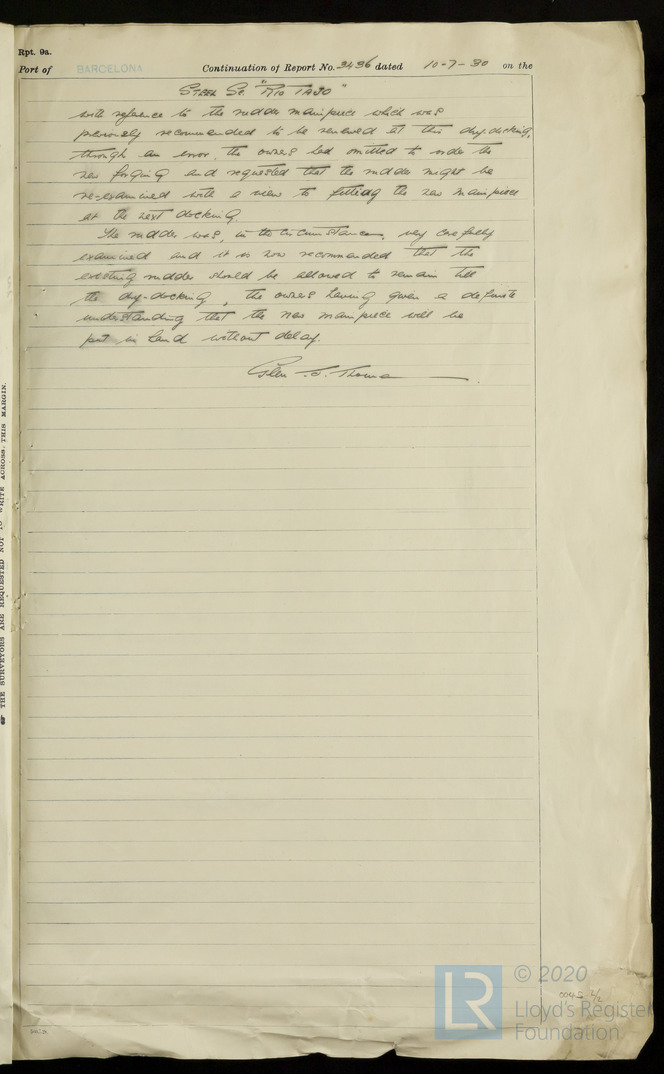 Rpt. 9a.
Port of BARCELONA Continuation of Report No. 3436 dated 10-7-30 on the
STEEL Sc. "RIO TAJO"
with reference to the rudder mainpiece which was
previously recommended to be renewed at this dry-docking,
through an error, the owners had omitted to order the
new forging and requested that the rudder might be
re-examined with a view to fitting the new mainpiece
at the next docking.
The rudder was, in the circumstances, very carefully
examined and it is now recommended that the
existing rudder should be allowed to remain till
the dry-docking, the owners having given a definite
understanding that the new mainpiece will be
put in hand without delay.
THE SURVEYORS ARE REQUESTED NOT TO WRITE ACROSS THIS MARGIN.
LR
© 2020
Lloyd's Register
Foundation